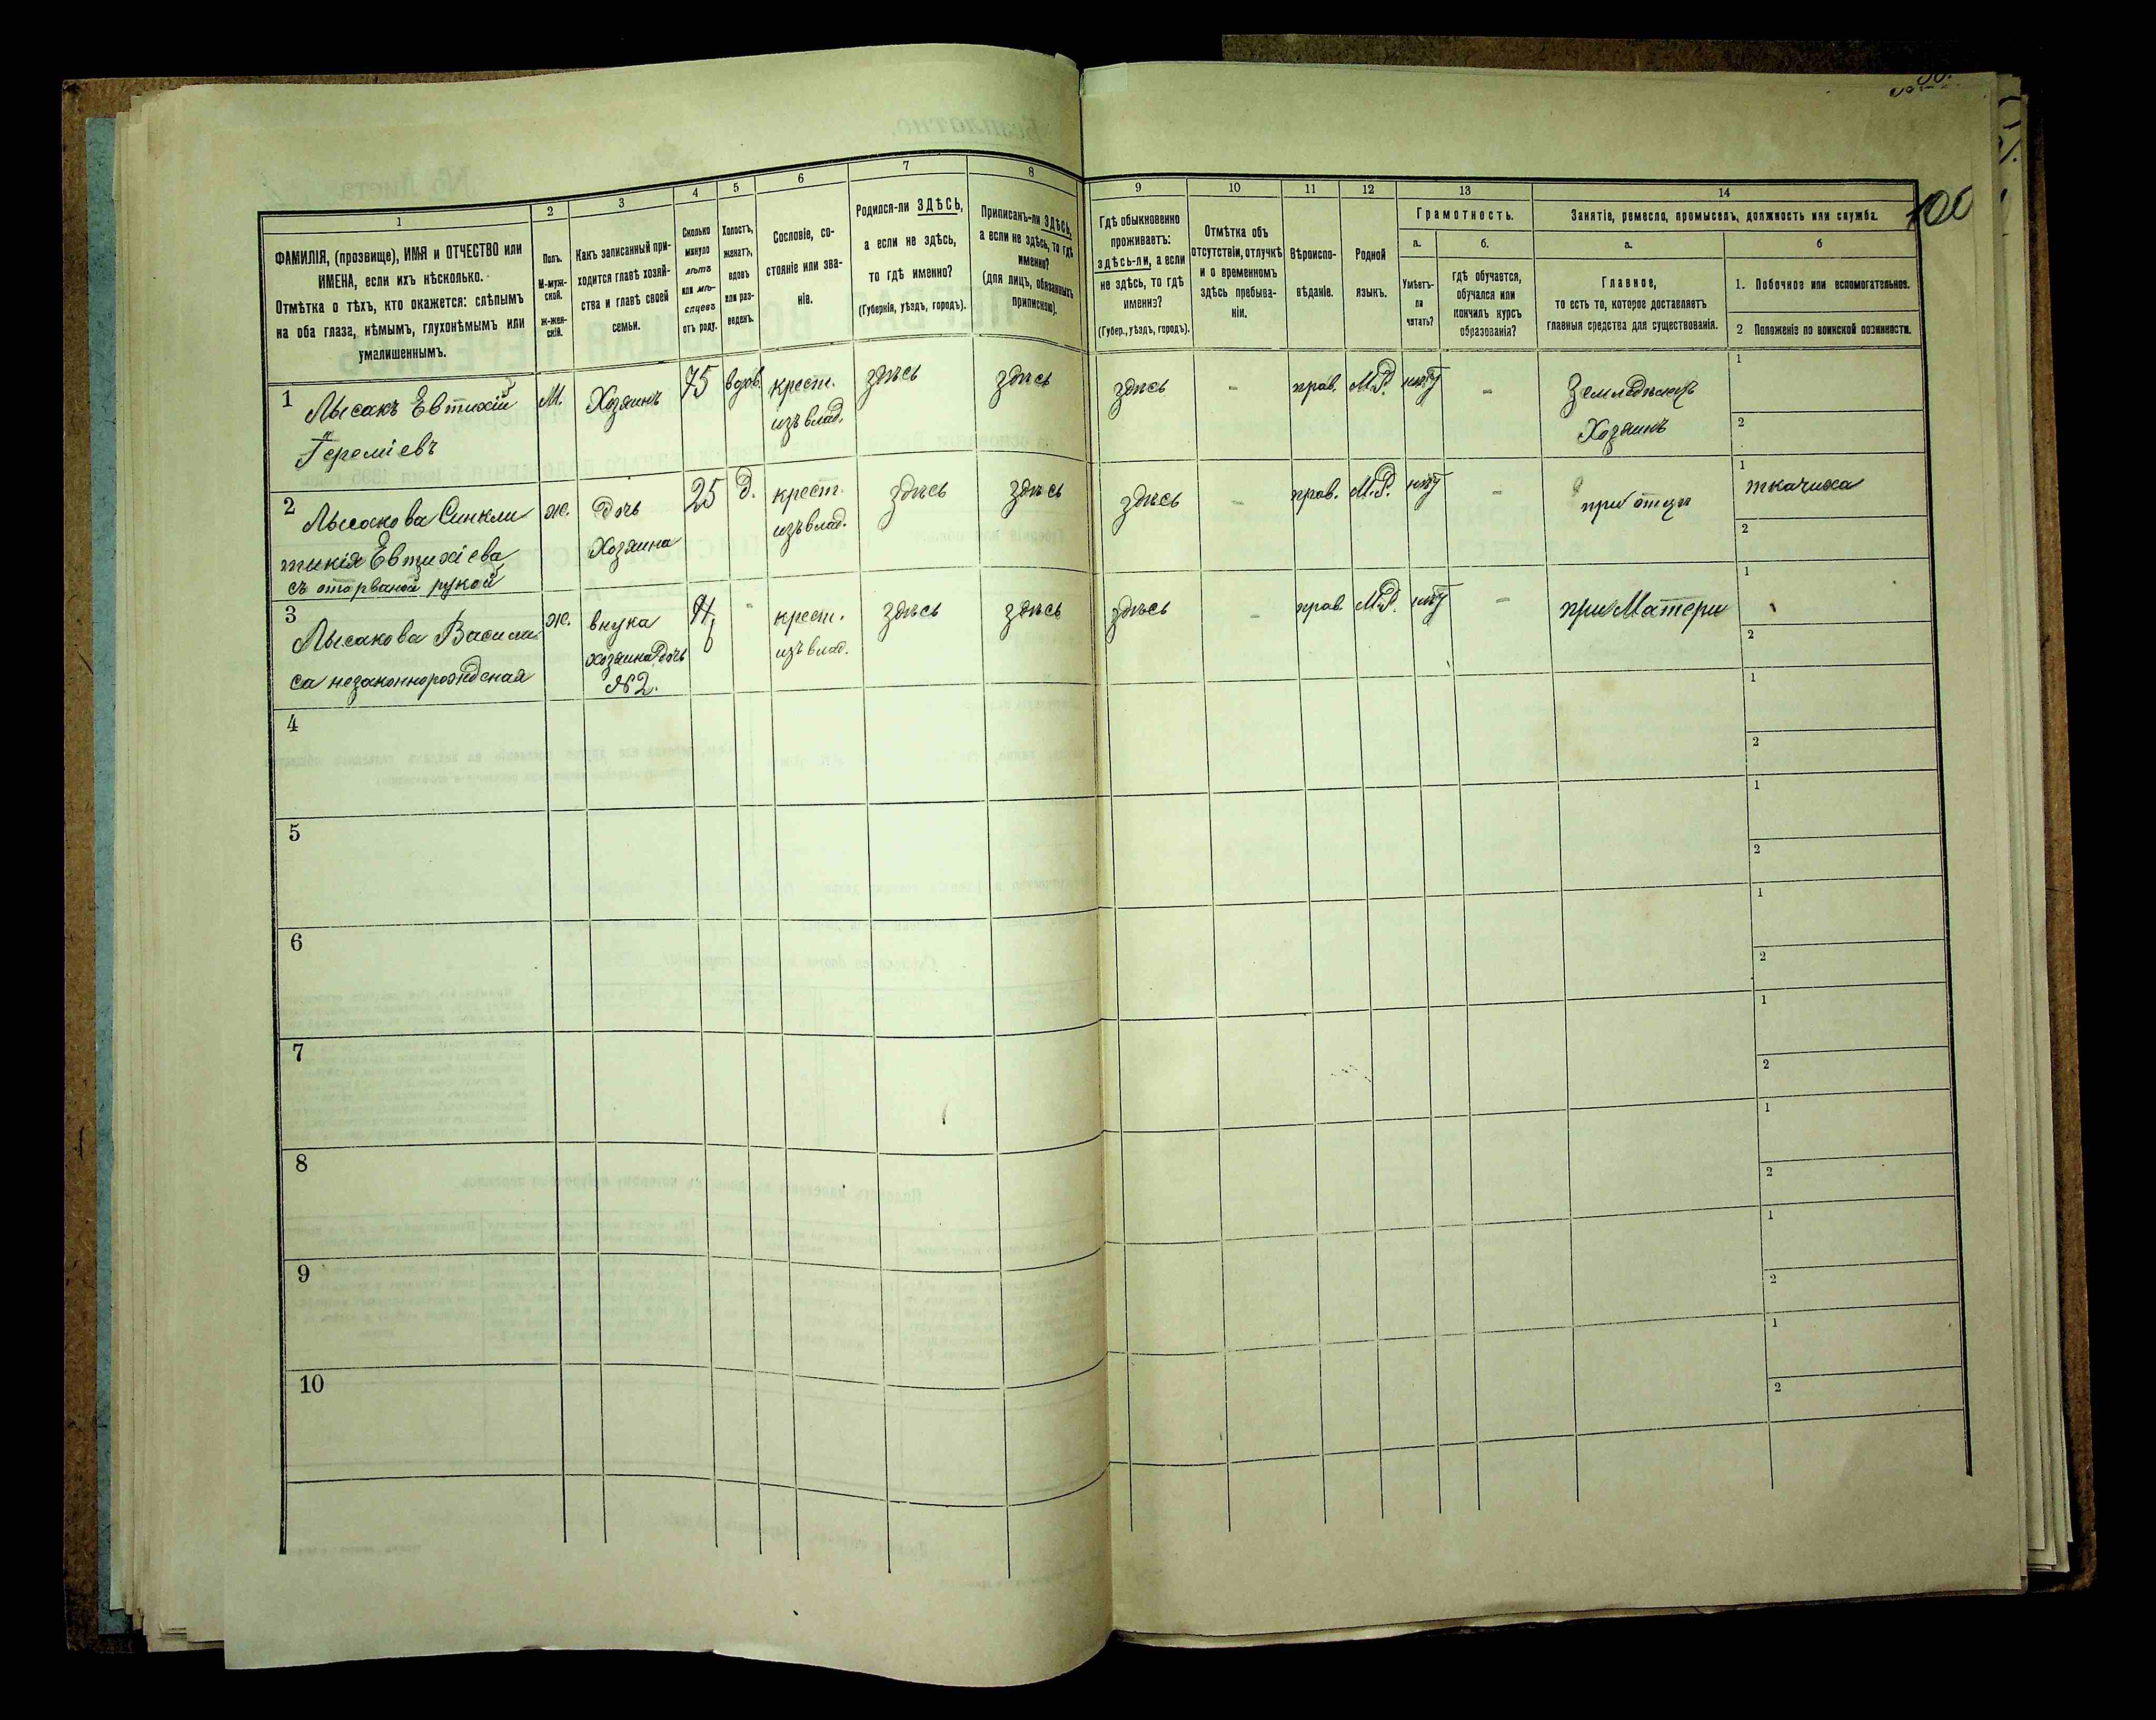 100
1 2 3 4 5 6 7 8 9 10 11 12 13 14
ФАМИЛІЯ, (прозвище), ИМЯ и ОТЧЕСТВО или
ИМЕНА, если ихъ нѣсколько.
Отмѣтка о тѣхъ, кто окажется: слѣпымъ
на оба глаза, нѣмымъ, глухонѣмымъ или
умалишеннымъ.
Полъ.
М-муж-
ской.
Ж-жен-
скій.
Какъ записанный при-
ходится главѣ хозяй-
ства и главѣ своей
семьи.
Сколько
минуло
лѣтъ
или мѣ-
сяцевъ
отъ роду.
Холостъ,
женатъ,
вдовъ
или раз-
веденъ.
Сословіе, со-
стояніе или зва-
ніе.
Родился-ли ЗДѢСЬ,
а если не здѣсь,
то гдѣ именно?
(Губернія, уѣздъ, городъ).
Приписанъ-ли ЗДѢСЬ,
а если не здѣсь, то гдѣ
именно?
(для лицъ, обязанныхъ
припискою).
Гдѣ обыкновенно
проживаетъ:
здѣсь-ли, а если
не здѣсь, то гдѣ
именно?
(Губер., уѣздъ, городъ).
Отмѣтка объ
отсутствіи, отлучкѣ
и о временномъ
здѣсь пребыва-
ніи.
Вѣроиспо-
вѣданіе.
Родной
языкъ.
Грамотность.
а.
Умѣетъ-
ли
читать?
б.
гдѣ обучается,
обучался или
кончилъ курсъ
образованія?
Занятіе, ремесло, промыселъ, должность или служба.
а.
Главное,
то есть то, которое доставляетъ
главныя средства для существованія.
б
1. Побочное или вспомогательное.
2 Положеніе по воинской повинности.
1 Лысакъ Евтихій М. Хозяинъ 75 вдов. крест. здѣсь здѣсь здѣсь - прав. М.Р. нѣт - Земледѣлецъ 1
Іереміевъ изъ влад. Хозяинъ 2
2 Лысакова Синкли ж. Дочь 25 д. крест. здѣсь здѣсь здѣсь - прав. М.Р. нѣт - при отцѣ 1 ткачиха
тикія Евтихіева Хозяина изъ влад. 2
съ оторваной рукой
3 Лысакова Васили ж. внука - крест. здѣсь здѣсь здѣсь - прав. М.Р. нѣт - при Матери 1
са незаконнорожденая хозяина Дочь изъ влад. 2
№ 2.
4 1
2
5 1
2
6 1
2
7 1
2
8 1
2
9 1
2
10 1
2